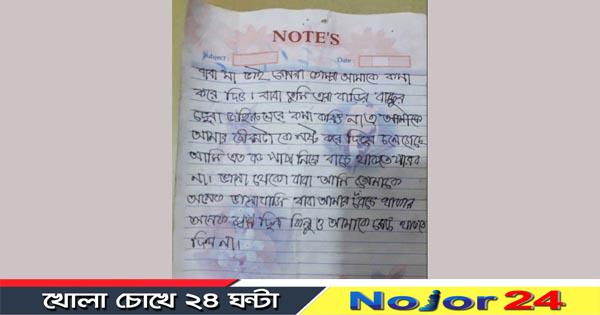 NOTE'S
Subject : Date :
বাবা মা ভাই তোমরা আমাকে ক্ষমা
করে দিও। বাবা তুমি এই বাড়ির
ক্ষমা করিও না ও আমাকে
আমার জীবনটা কে নষ্ট করে দিয়ে চলে গেছে
আমি এত কষ্ট নিয়ে বাঁচে থাকতে পারব
না। ভালো থেকো বাবা আমি তোমাকে
অনেক ভালোবাসি বাবা আমার বেঁচে থাকার
অনেক ইচ্ছা ছিল কিন্তু ও আমাকে বেঁচে থাকতে
দিল না।
খোলা চোখে ২৪ ঘন্টা
Nojor 24